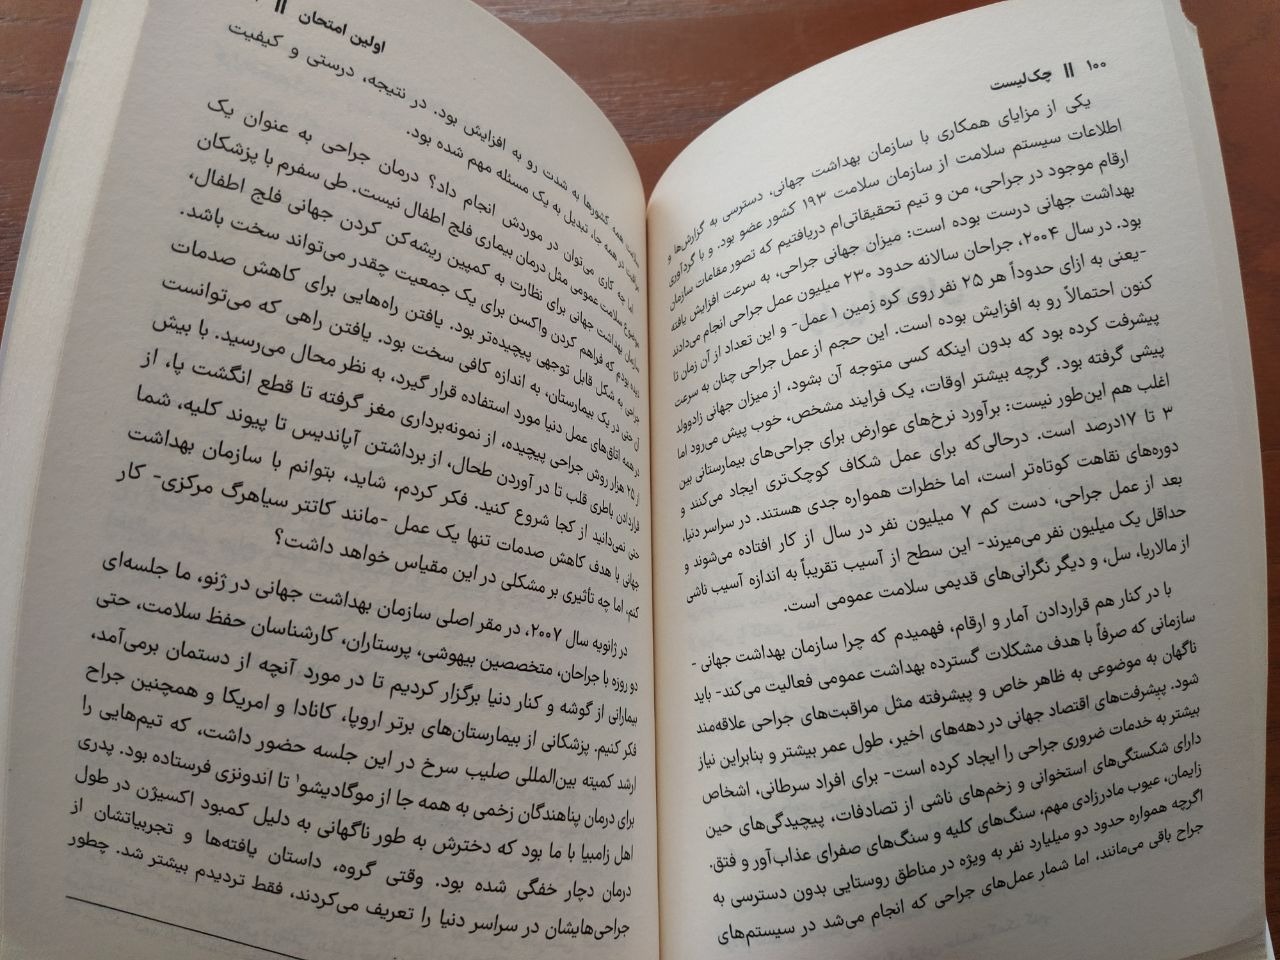 ۱۰۰ || چک‌لیست
یکی از مزایای همکاری با سازمان بهداشت جهانی، دسترسی به گزارش‌ها و
اطلاعات سیستم سلامت از سازمان سلامت ۱۹۳ کشور عضو بود. و با گردآوری
ارقام موجود در جراحی، من و تیم تحقیقاتی‌ام دریافتیم که تصور مقامات سازمان
بهداشت جهانی درست بوده است: میزان جهانی جراحی، به سرعت افزایش یافته
بود. در سال ۲۰۰۴، جراحان سالانه حدود ۲۳۰ میلیون عمل جراحی انجام می‌دادند
-یعنی به ازای حدوداً هر ۲۵ نفر روی کره زمین ۱ عمل- و این تعداد از آن زمان تا
کنون احتمالاً رو به افزایش بوده است. این حجم از عمل جراحی چنان به سرعت
پیشرفت کرده بود که بدون اینکه کسی متوجه آن بشود، از میزان جهانی زادوولد
پیشی گرفته بود. گرچه بیشتر اوقات، یک فرایند مشخص، خوب پیش می‌رود اما
اغلب هم این‌طور نیست: برآورد نرخ‌های عوارض برای جراحی‌های بیمارستانی بین
۳ تا ۱۷درصد است. درحالی‌که برای عمل شکاف کوچک‌تری ایجاد می‌کنند و
دوره‌های نقاهت کوتاه‌تر است، اما خطرات همواره جدی هستند. در سراسر دنیا،
بعد از عمل جراحی، دست کم ۷ میلیون نفر در سال از کار افتاده می‌شوند و
حداقل یک میلیون نفر می‌میرند- این سطح از آسیب تقریباً به اندازه آسیب ناشی
از مالاریا، سل، و دیگر نگرانی‌های قدیمی سلامت عمومی است.
با در کنار هم قراردادن آمار و ارقام، فهمیدم که چرا سازمان بهداشت جهانی -
سازمانی که صرفاً با هدف مشکلات گسترده بهداشت عمومی فعالیت می‌کند- باید
ناگهان به موضوعی به ظاهر خاص و پیشرفته مثل مراقبت‌های جراحی علاقه‌مند
شود. پیشرفت‌های اقتصاد جهانی در دهه‌های اخیر، طول عمر بیشتر و بنابراین نیاز
بیشتر به خدمات ضروری جراحی را ایجاد کرده است- برای افراد سرطانی، اشخاص
دارای شکستگی‌های استخوانی و زخم‌های ناشی از تصادفات، پیچیدگی‌های حین
زایمان، عیوب مادرزادی مهم، سنگ‌های کلیه و سنگ‌های صفرای عذاب‌آور و فتق.
اگرچه همواره حدود دو میلیارد نفر به ویژه در مناطق روستایی بدون دسترسی به
جراح باقی می‌مانند، اما شمار عمل‌های جراحی که انجام می‌شد در سیستم‌های
اولین امتحان ||
همه کشورها به شدت رو به افزایش بود. در نتیجه، درستی و کیفیت
در همه جا، تبدیل به یک مسئله مهم شده بود.
اما چه کاری می‌توان در موردش انجام داد؟ درمان جراحی به عنوان یک
موضوع سلامت عمومی مثل درمان بیماری فلج اطفال نیست. طی سفرم با پزشکان
سازمان بهداشت جهانی برای نظارت به کمپین ریشه‌کن کردن جهانی فلج اطفال،
دیده بودم که فراهم کردن واکسن برای یک جمعیت چقدر می‌تواند سخت باشد.
جراحی به شکل قابل توجهی پیچیده‌تر بود. یافتن راه‌هایی برای کاهش صدمات
آن حتی در یک بیمارستان، به اندازه کافی سخت بود. یافتن راهی که می‌توانست
در همه اتاق‌های عمل دنیا مورد استفاده قرار گیرد، به نظر محال می‌رسید. با بیش
از ۲۵ هزار روش جراحی پیچیده، از نمونه‌برداری مغز گرفته تا قطع انگشت پا، از
قراردادن باطری قلب تا در آوردن طحال، از برداشتن آپاندیس تا پیوند کلیه، شما
حتی نمی‌دانید از کجا شروع کنید. فکر کردم، شاید، بتوانم با سازمان بهداشت
جهانی با هدف کاهش صدمات تنها یک عمل -مانند کاتتر سیاهرگ مرکزی- کار
کنم، اما چه تأثیری بر مشکلی در این مقیاس خواهد داشت؟
در ژانویه سال ۲۰۰۷، در مقر اصلی سازمان بهداشت جهانی در ژنو، ما جلسه‌ای
دو روزه با جراحان، متخصصین بیهوشی، پرستاران، کارشناسان حفظ سلامت، حتی
بیمارانی از گوشه و کنار دنیا برگزار کردیم تا در مورد آنچه از دستمان برمی‌آمد،
فکر کنیم. پزشکانی از بیمارستان‌های برتر اروپا، کانادا و امریکا و همچنین جراح
ارشد کمیته بین‌المللی صلیب سرخ در این جلسه حضور داشت، که تیم‌هایی را
برای درمان پناهندگان زخمی به همه جا از موگادیشو۱ تا اندونزی فرستاده بود. پدری
اهل زامبیا با ما بود که دخترش به طور ناگهانی به دلیل کمبود اکسیژن در طول
درمان دچار خفگی شده بود. وقتی گروه، داستان یافته‌ها و تجربیاتشان از
جراحی‌هایشان در سراسر دنیا را تعریف می‌کردند، فقط تردیدم بیشتر شد. چطور